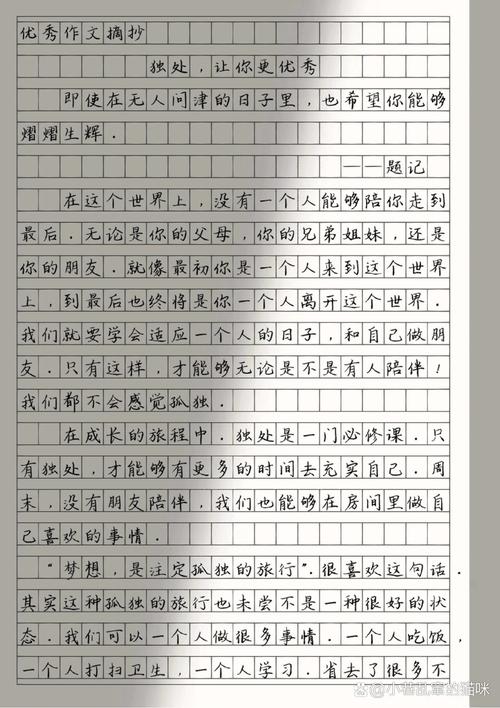 优秀作文摘抄
独处，让你更优秀
即使在无人问津的日子里，也希望你能够
熠熠生辉．
——题记
在这个世界上，没有一个人能够陪你走到
最后．无论是你的父母，你的兄弟姐妹，还是
你的朋友．就像最初你是一个人来到这个世界
上，到最后也终将是你一个人离开这个世界．
我们就要学会适应一个人的日子，和自己做朋
友．只有这样，才能够无论是不是有人陪伴！
我们都不会感觉孤独．
在成长的旅程中．独处是一门必修课．只
有独处，才能够有更多的时间去充实自己．周
末，没有朋友陪伴，我们也能够在房间里做自
己喜欢的事情．
“梦想，是注定孤独的旅行”．很喜欢这句话．
其实这种孤独的旅行也未尝不是一种很好的状
态．我们可以一个人做很多事情．一个人吃饭，
一个人打扫卫生，一个人学习．省去了很多不